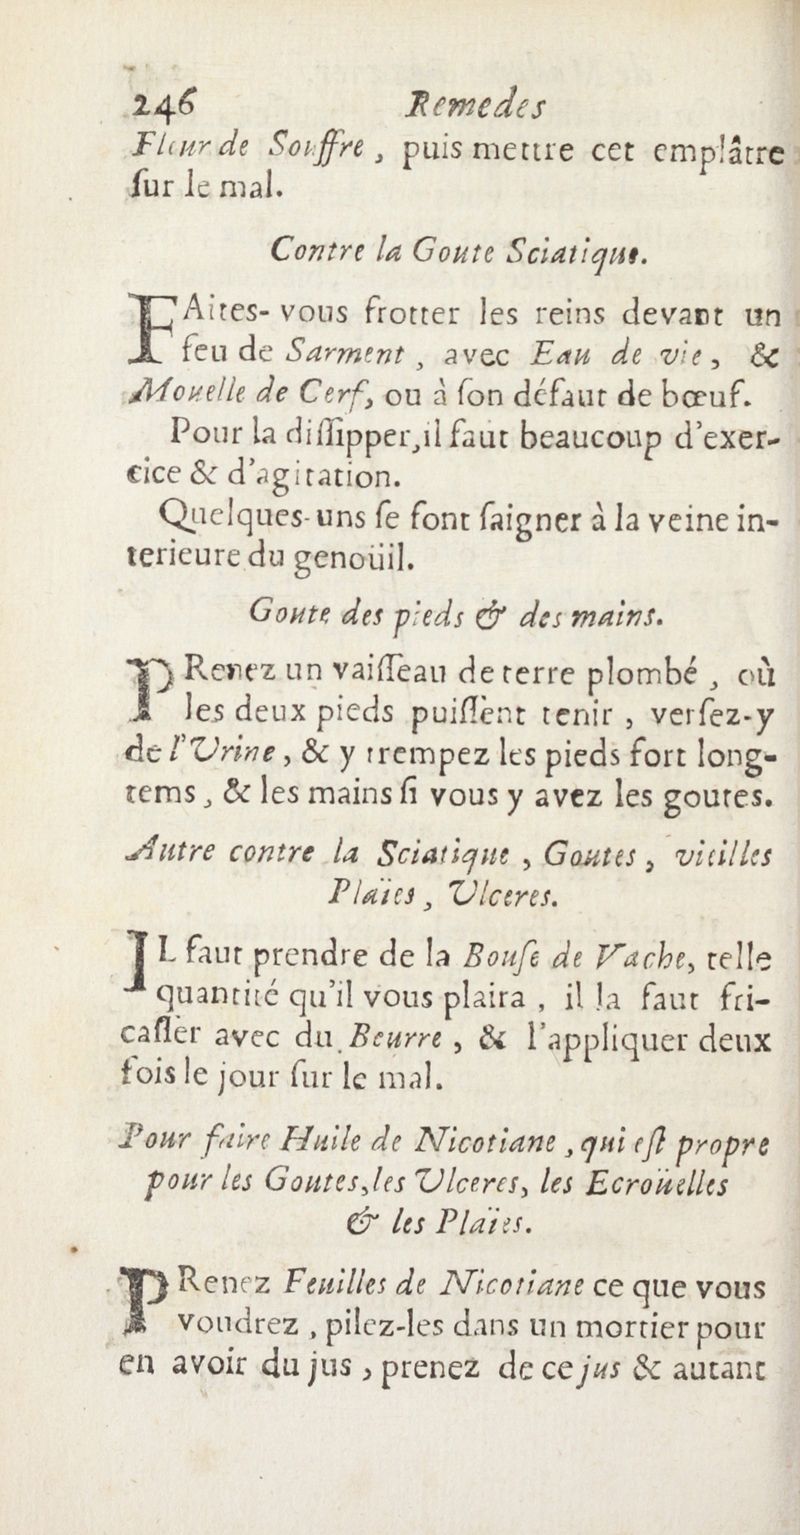 246 Remedes
Fleur de Souffre, puis mettre cet emplâtre
ſur le mal.
Contre la Goute Sciatique.
FAites-vous frotter les reins devant un
feu de Sarment, avec Eau de vie, &
Mouelle de Cerf, ou à ſon défaut de bœuf.
Pour la diſſipper, il faut beaucoup d'exer-
cice & d'agitation.
Quelques-uns ſe font ſaigner à la veine in-
terieure du genoüil.
Goute des pieds & des mains.
PRenez un vaiſſeau de terre plombé, où
les deux pieds puiſſent tenir, verſez-y
de l'Vrine, & y trempez les pieds fort long-
tems, & les mains ſi vous y avez les goutes.
Autre contre la Sciatique, Goutes, vieilles
Plaïes, Vlceres.
IL faut prendre de la Bouſe de Vache, telle
quantité qu'il vous plaira, il la faut fri-
caſſer avec du Beurre, & l'appliquer deux
fois le jour ſur le mal.
Pour faire Huile de Nicotiane, qui eſt propre
pour les Goutes, les Vlceres, les Ecroüelles
& les Plaïes.
PRenez Feuilles de Nicotiane ce que vous
voudrez, pilez-les dans un mortier pour
en avoir du jus, prenez de ce jus & autant